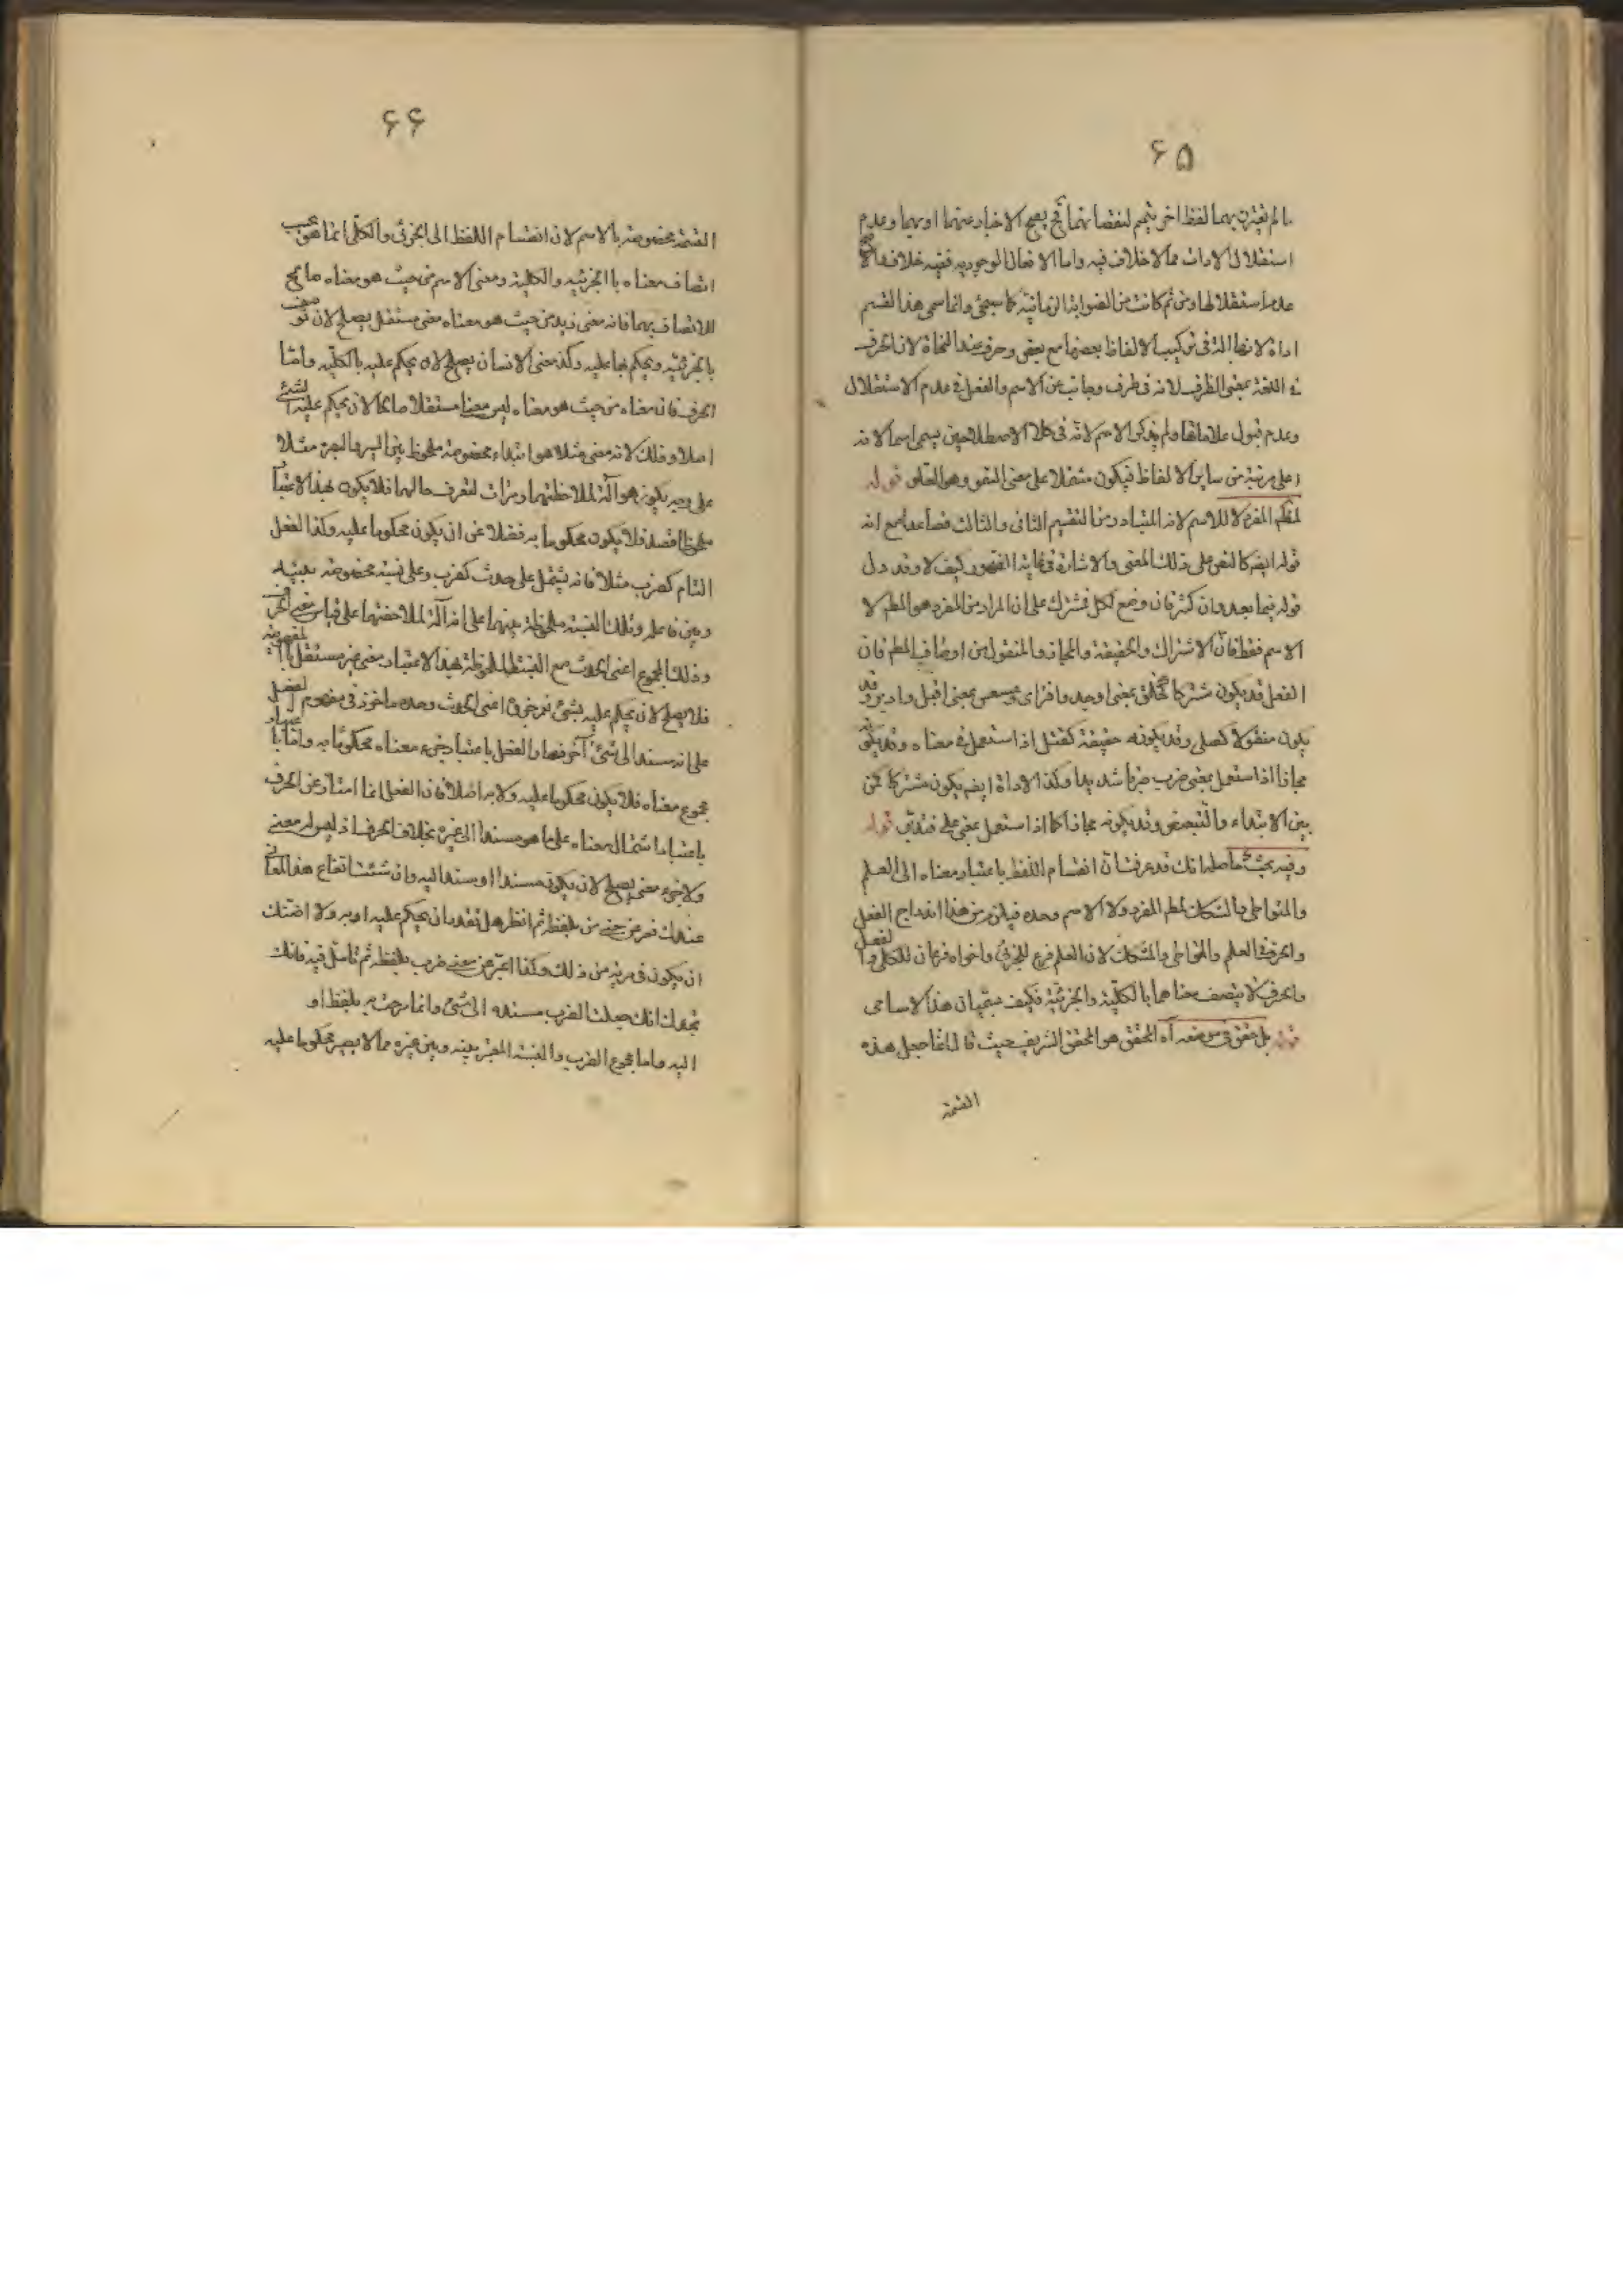 ۶۵
مالم يقترن بهما لفظ اخر يتم لنقصانهما فح يصح الاخبار عنهما او بهما وعدم
استقلال الادات مما لا خلاف فيه واما الافعال الوجودية ففيه خلاف والاصح
عدم استقلالها ومن ثم كانت من الروابط الزمانية كما سيجئ وانما سمى هذا القسم
اداة لانها آلة فى تركيب الالفاظ بعضها مع بعض وحرف عند النحاة لان الحرف
فى اللغة بمعنى الطرف لانه فى طرف وجانب عن الاسم والفعل فى عدم الاستقلال
وعدم قبول علاماتها ولم يذكر الاسم لانه فى كلا الاصطلاحين يسمى اسما لانه
اعلى مرتبة من ساير الالفاظ فيكون مشتملا على معنى السمو وهو العلو قوله
لمطم المفرد لا للاسم لانه المتبادر من التقسيم الثانى والثالث فصاعدا مع انه
قوله ايضا كالنص على ذلك المعنى والاشارة فى غاية القصور كيف لا وقد دل
قوله فيما بعد وان كثر فان وضع لكل فمشترك على ان المراد من المفرد هو المطم لا
الاسم فقط فان الاشتراك والحقيقة والمجاز والمنقول من اوصاف المطم فان
الفعل قد يكون مشتركا كخلق بمعنى اوجد وافترى وعسعس بمعنى اقبل وادبر وقد
يكون منقولا كصلى وقد يكون حقيقة كقتل اذا استعمل فى معناه وقد يكون
مجازا اذا استعمل بمعنى ضرب ضربا شديدا وكذا الاداة ايضا يكون مشتركا كمن
بين الابتداء والتبعيض وقد يكون مجازا كما اذا استعمل بمعنى على فتدبر قوله
وفيه بحث حاصله انك قد عرفت ان انقسام اللفظ باعتبار معناه الى العلم
والمتواطى والمشكك لمطم المفرد ولا الاسم وحده فيلزم من هذا اندراج الفعل
والحرف فى العلم والمتواطى والمشكك لان العلم فرع للجزئى واخواه فرعان للكلى والفعل
والحرف لا يتصف معناهما بالكلية والجزئية فكيف يسميان هذا الاسامى
قوله بل حقق فى موضعه آه المحقق هو المحقق الشريف حيث قال انما جعل هذه
القسمة
۶۶
القسمة مخصوصة بالاسم لان انقسام اللفظ الى الجزئى والكلى انما هو بحسب
اتصاف معناه بالجزئية والكلية ومعنى الاسم من حيث هو معناه صالح
للاتصاف بهما فانه معنى زيد من حيث هو معناه معنى مستقل يصلح لان يوصف
بالجزئية ويحكم بها عليه وكذ معنى الانسان يصلح لان يحكم عليه بالكلية واما
الحرف فان معناه من حيث هو معناه ليس معنا مستقلا صالحا لان يحكم عليه بشئ
اصلا وذلك لانه معنى مثلا هو ابتداء مخصوصة ملحوظ بين السير والبصرة مثلا
على وجه يكون هو آلة لملاحظتهما ومرات لتعرف حالهما فلا يكون بهذا الاعتبار
ملحوظا قصدا فلا يكون محكوما به فضلا عن ان يكون محكوما عليه وكذا الفعل
التام كضرب مثلا فانه يشتمل على حدث كضرب وعلى نسبة مخصوصة بينه
وبين فاعله وتلك النسبة ملحوظة بينهما على انه آلة لملاحضتهما على قياس معنى الحرف
وذلك المجموع اعنى الحدث مع النسبة الملحوظة بهذا الاعتبار معنى غير مستقل بالمفهومية
فلا يصلح لان يحكم عليه بشئ نعم جزئه اعنى الحدث وحده ماخوذ فى مفهوم الفعل
على انه مسند الى شئ آخر فصار الفعل باعتبار جزء معناه محكوما به واما باعتبار
مجموع معناه فلا يكون محكوما عليه ولا به اصلا فان الفعل انما امتاز عن الحرف
باعتبار اشتمال معناه على ما هو مسند الى غيره بخلاف الحرف اذ ليس له معنى
ولا جزء معنى يصلح لان يكون مسندا او مسندا اليه وان شئت اتضاع هذا المعانى
عندك فعبر عن معنى من بلفظه ثم انظر هل تقدر ان يحكم عليه او به ولا اضنك
ان يكون فى مرية من ذلك وكذا اعبر عن معنى ضرب بلفظه ثم تامل فيه فانك
تجدك انك جعلت الضرب مسنده الى شئ وانما صرحت به بلفظ او
اليه واما مجموع الضرب والنسبة المعتبر بينه وبين غيره مما لا يصير محكوما عليه